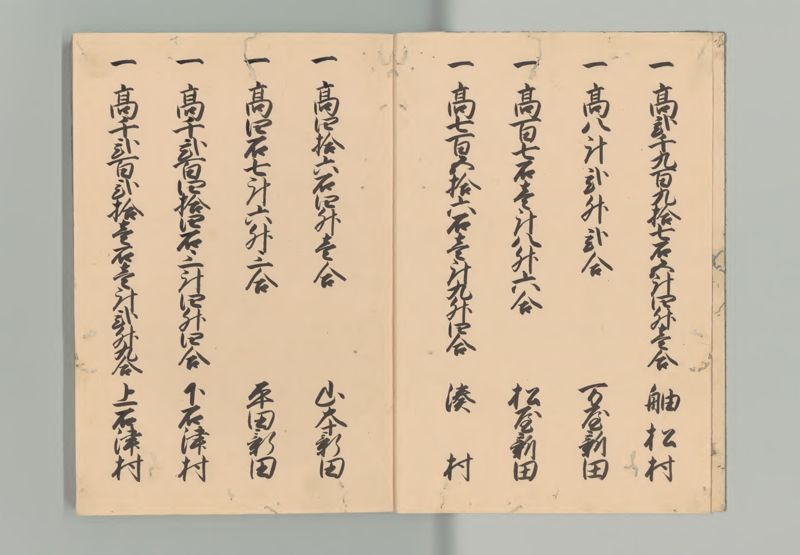 一 高弐千九百九拾七石五斗四升壱合 舳松村
一 高八斗弐升弐合 万屋新田
一 高百七石壱斗八升六合 松屋新田
一 高七百五拾六石壱斗九升四合 湊村
一 高四拾六石四升壱合 山本新田
一 高四石七斗六升二合 平田新田
一 高千弐百四拾四石二斗四升四合 下石津村
一 高千弐百弐拾壱石壱斗弐升九合 上石津村